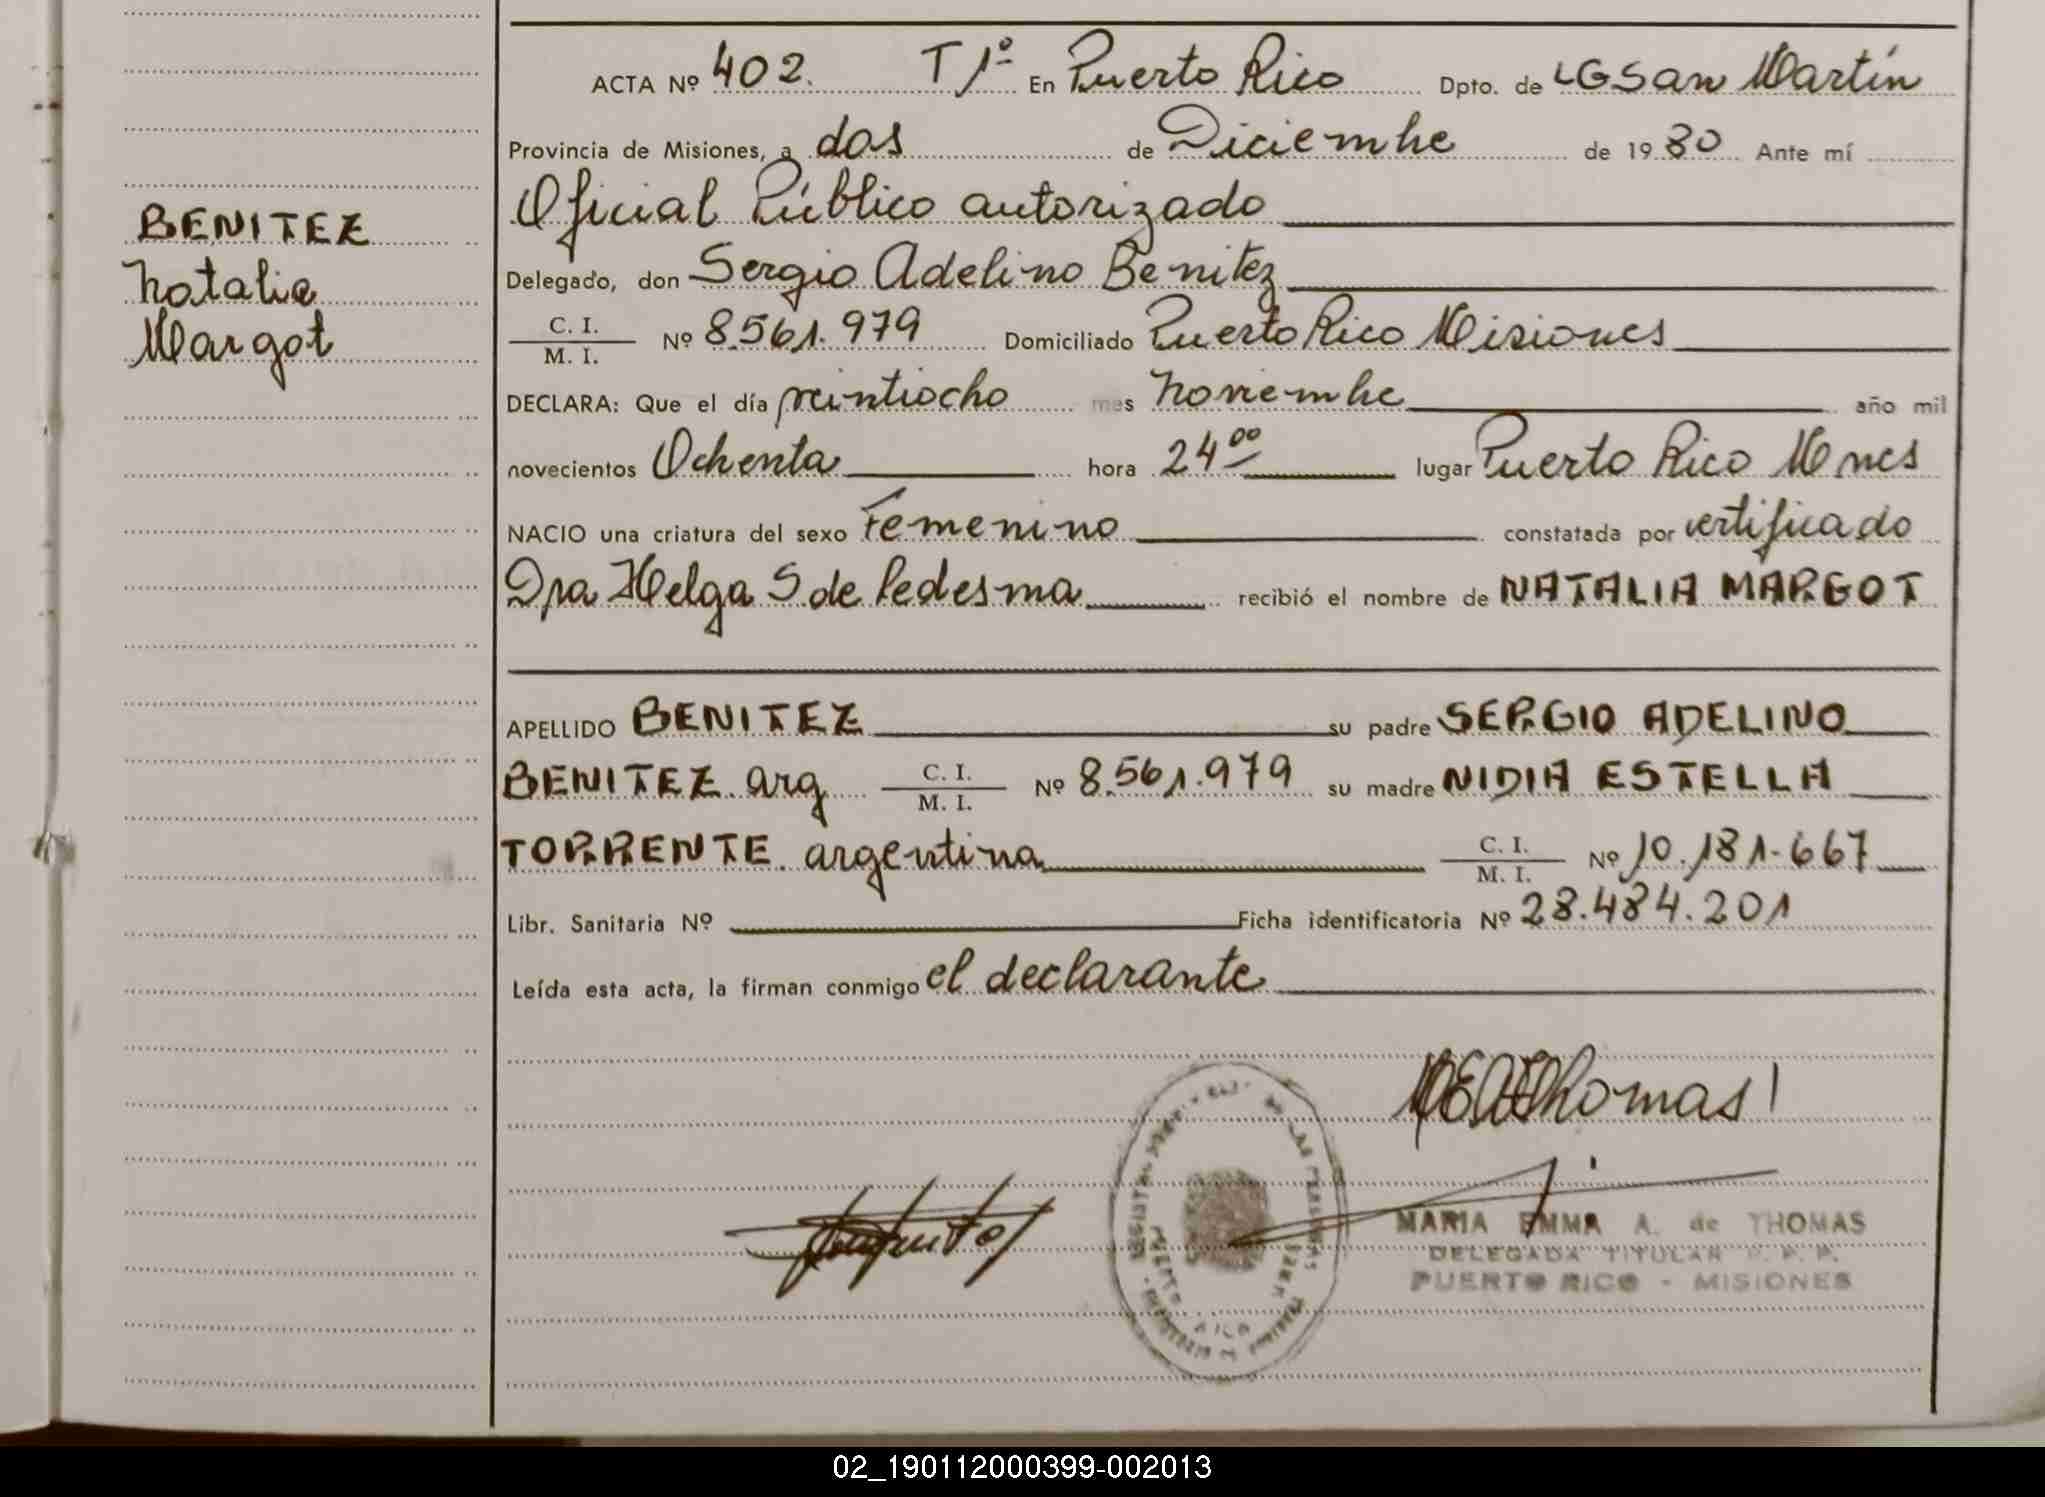 ACTA Nº 402. T 1º En Puerto Rico Dpto. de LGSan Martín
Provincia de Misiones, a dos de Diciembre de 1980 Ante mí
Oficial Público autorizado
BENITEZ
Delegado, don Sergio Adelino Benitez
Natalia
C. I.
M. I. Nº 8.561.979 Domiciliado Puerto Rico Misiones
Margot
DECLARA: Que el día veintiocho mes Noviembre año mil
novecientos Ochenta hora 24⁰⁰ lugar Puerto Rico Mnes
NACIO una criatura del sexo Femenino constatada por certificado
Dra Helga S de Ledesma recibió el nombre de NATALIA MARGOT
APELLIDO BENITEZ su padre SERGIO ADELINO
BENITEZ arg C. I. M. I. Nº 8.561.979 su madre NIDIA ESTELLA
TORRENTE argentina C. I. M. I. Nº 10.181.667
Libr. Sanitaria Nº Ficha identificatoria Nº 28.484.201
Leída esta acta, la firman conmigo el declarante
Thomas
MARIA EMMA A. de THOMAS
DELEGADA TITULAR
PUERTO RICO - MISIONES
02_190112000399-002013